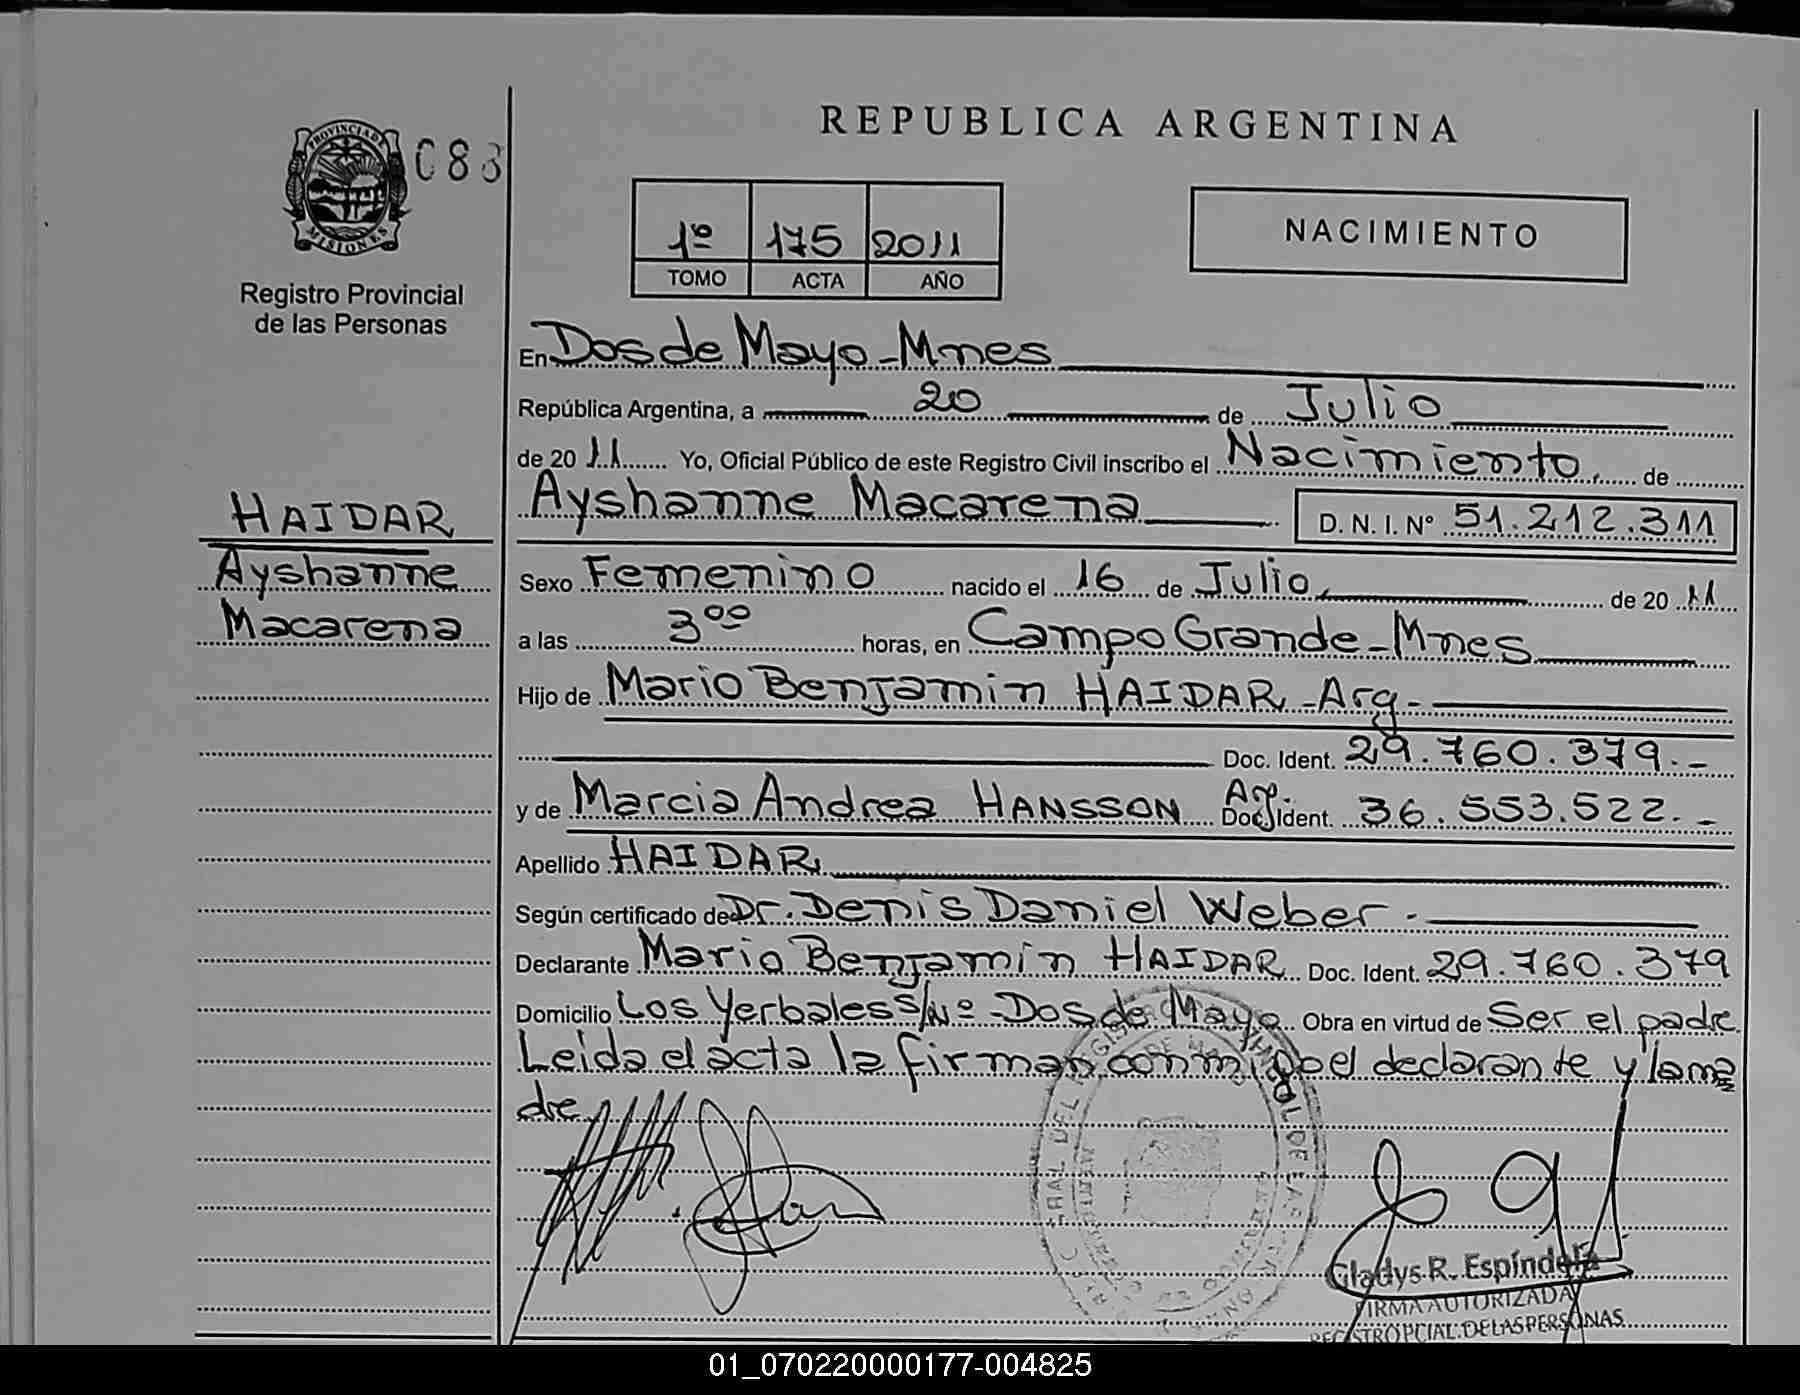 REPUBLICA ARGENTINA
PROVINCIA DE
MISIONES
083
Registro Provincial
de las Personas
1º 175 2011
TOMO ACTA AÑO
NACIMIENTO
En Dos de Mayo - Mnes
República Argentina, a 20 de Julio
de 2011 Yo, Oficial Público de este Registro Civil inscribo el Nacimiento de
Ayshanne Macarena D. N. I. Nº 51.212.311
HAIDAR
Ayshanne
Macarena
Sexo Femenino nacido el 16 de Julio de 2011
a las 3⁰⁰ horas, en Campo Grande - Mnes
Hijo de Mario Benjamin HAIDAR - Arg -
Doc. Ident. 29.760.379.-
y de Marcia Andrea HANSSON Arg Doc. Ident. 36.553.522.-
Apellido HAIDAR
Según certificado de Dr. Denis Daniel Weber.
Declarante Mario Benjamin HAIDAR Doc. Ident. 29.760.379
Domicilio Los Yerbales s/Nº - Dos de Mayo Obra en virtud de Ser el padre
Leida el acta la firman conmigo el declarante y la ma
dre
Gladys R. Espíndola
FIRMA AUTORIZADA
REGISTRO PCIAL. DE LAS PERSONAS
01_070220000177-004825